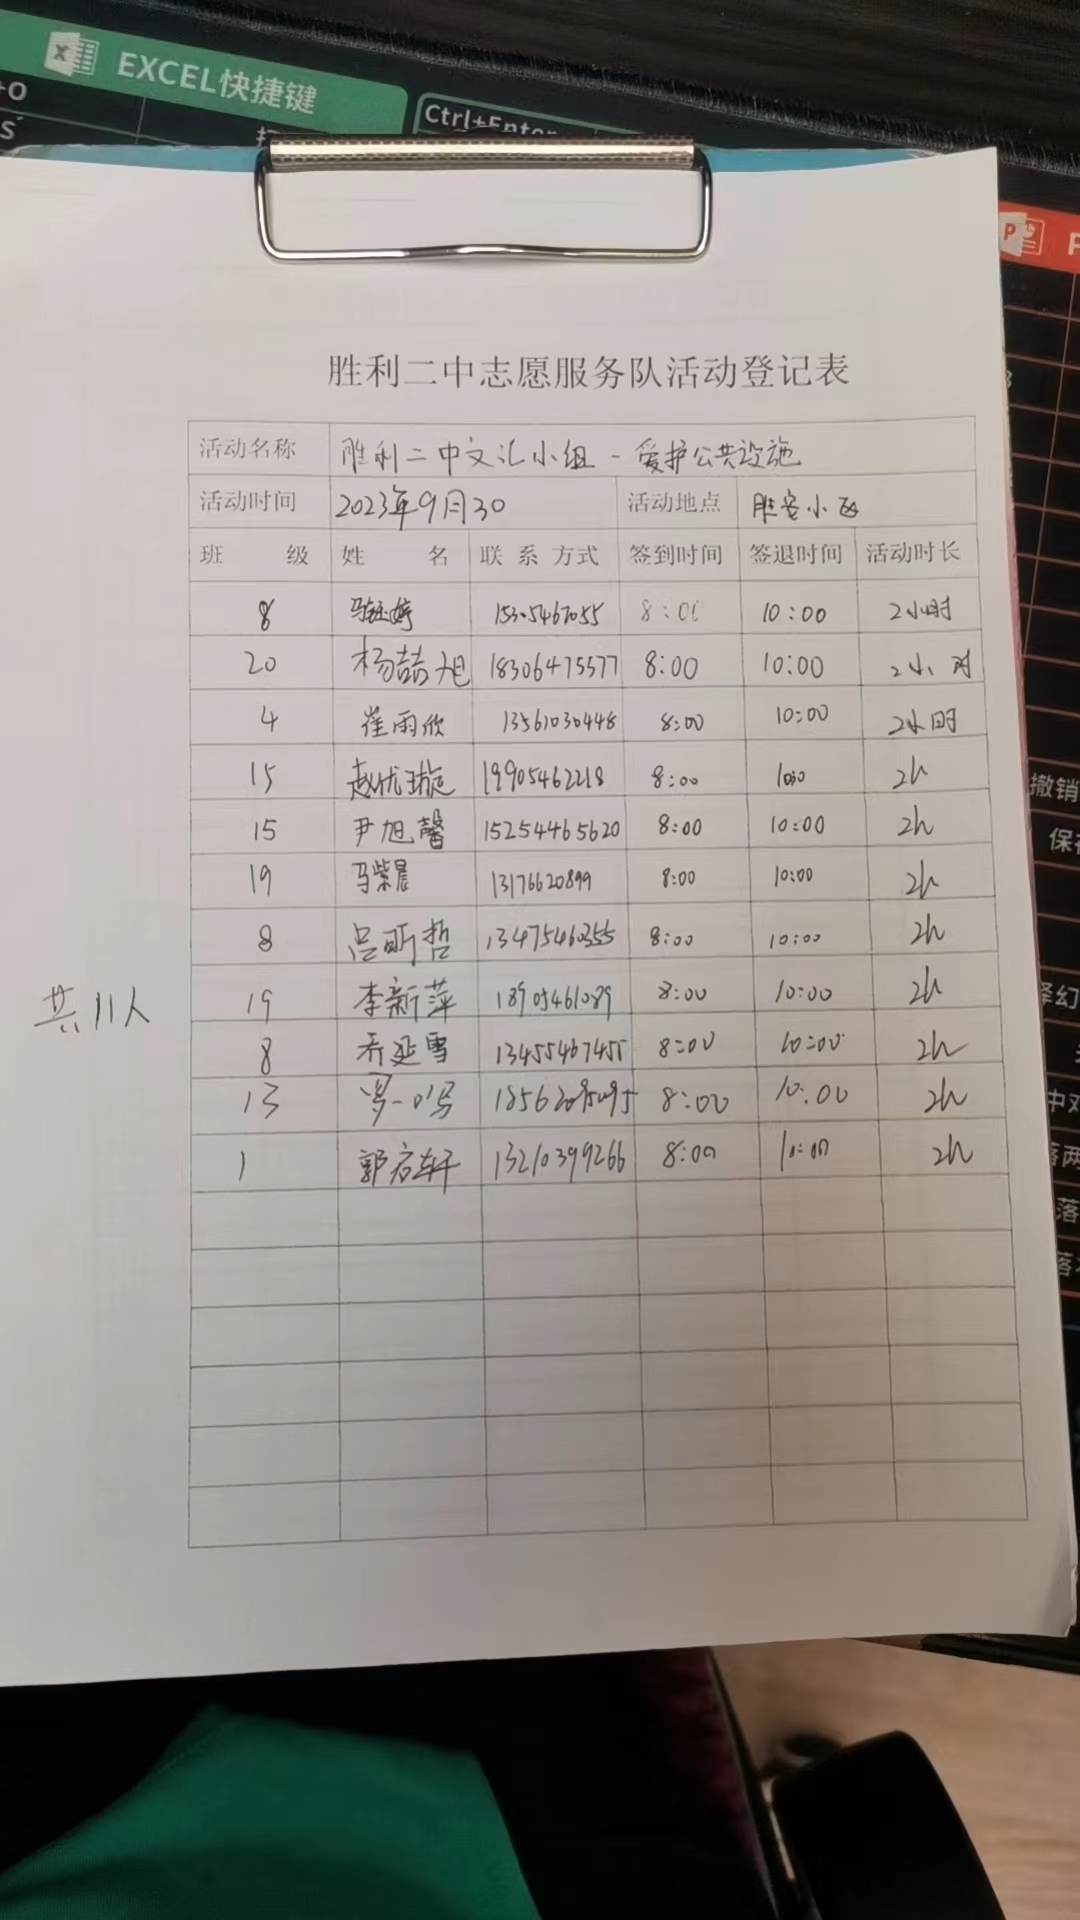 EXCEL快捷键
Ctrl+Enter
胜利二中志愿服务队活动登记表
活动名称 胜利二中文汇小组-爱护公共设施
活动时间 2023年9月30 活动地点 胜安小区
班 级 姓 名 联系方式 签到时间 签退时间 活动时长
8 马钰婷 15305467055 8:00 10:00 2小时
20 杨喆旭 18306475577 8:00 10:00 2小时
4 崔雨欣 13561030448 8:00 10:00 2小时
15 赵优璇 19905462218 8:00 10:00 2h
15 尹旭馨 15254465620 8:00 10:00 2h
19 马紫晨 13176620899 8:00 10:00 2h
8 吕昕哲 13475460355 8:00 10:00 2h
19 李新萍 18905461089 8:00 10:00 2h
8 乔延雪 13455467455 8:00 10:00 2h
13 罗一鸣 8:00 10:00 2h
1 郭启轩 13210399266 8:00 10:00 2h
共11人
撤销